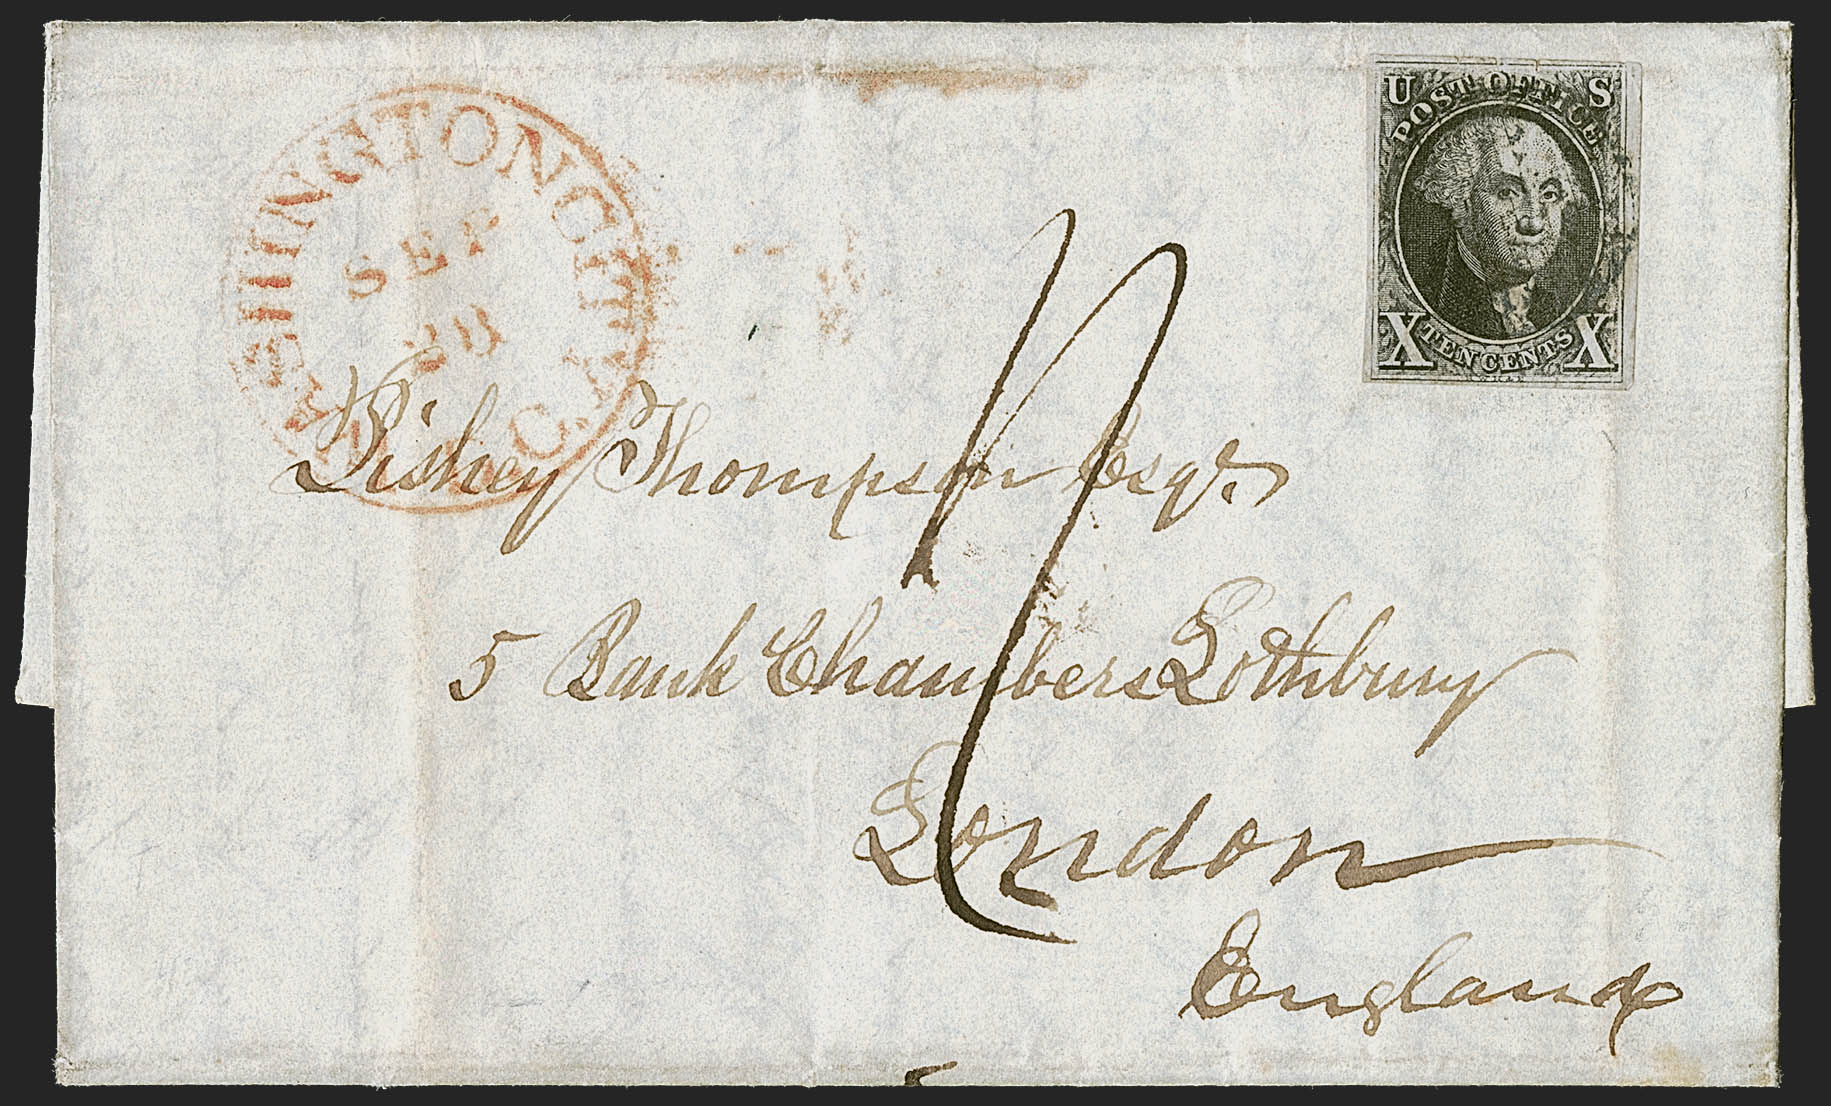 WASHINGTON CITY D.C.
SEP
28
U S
POST OFFICE
X TEN CENTS X
Pishey Thompson Esqr.
5 Bank Chambers Lothbury
London
England